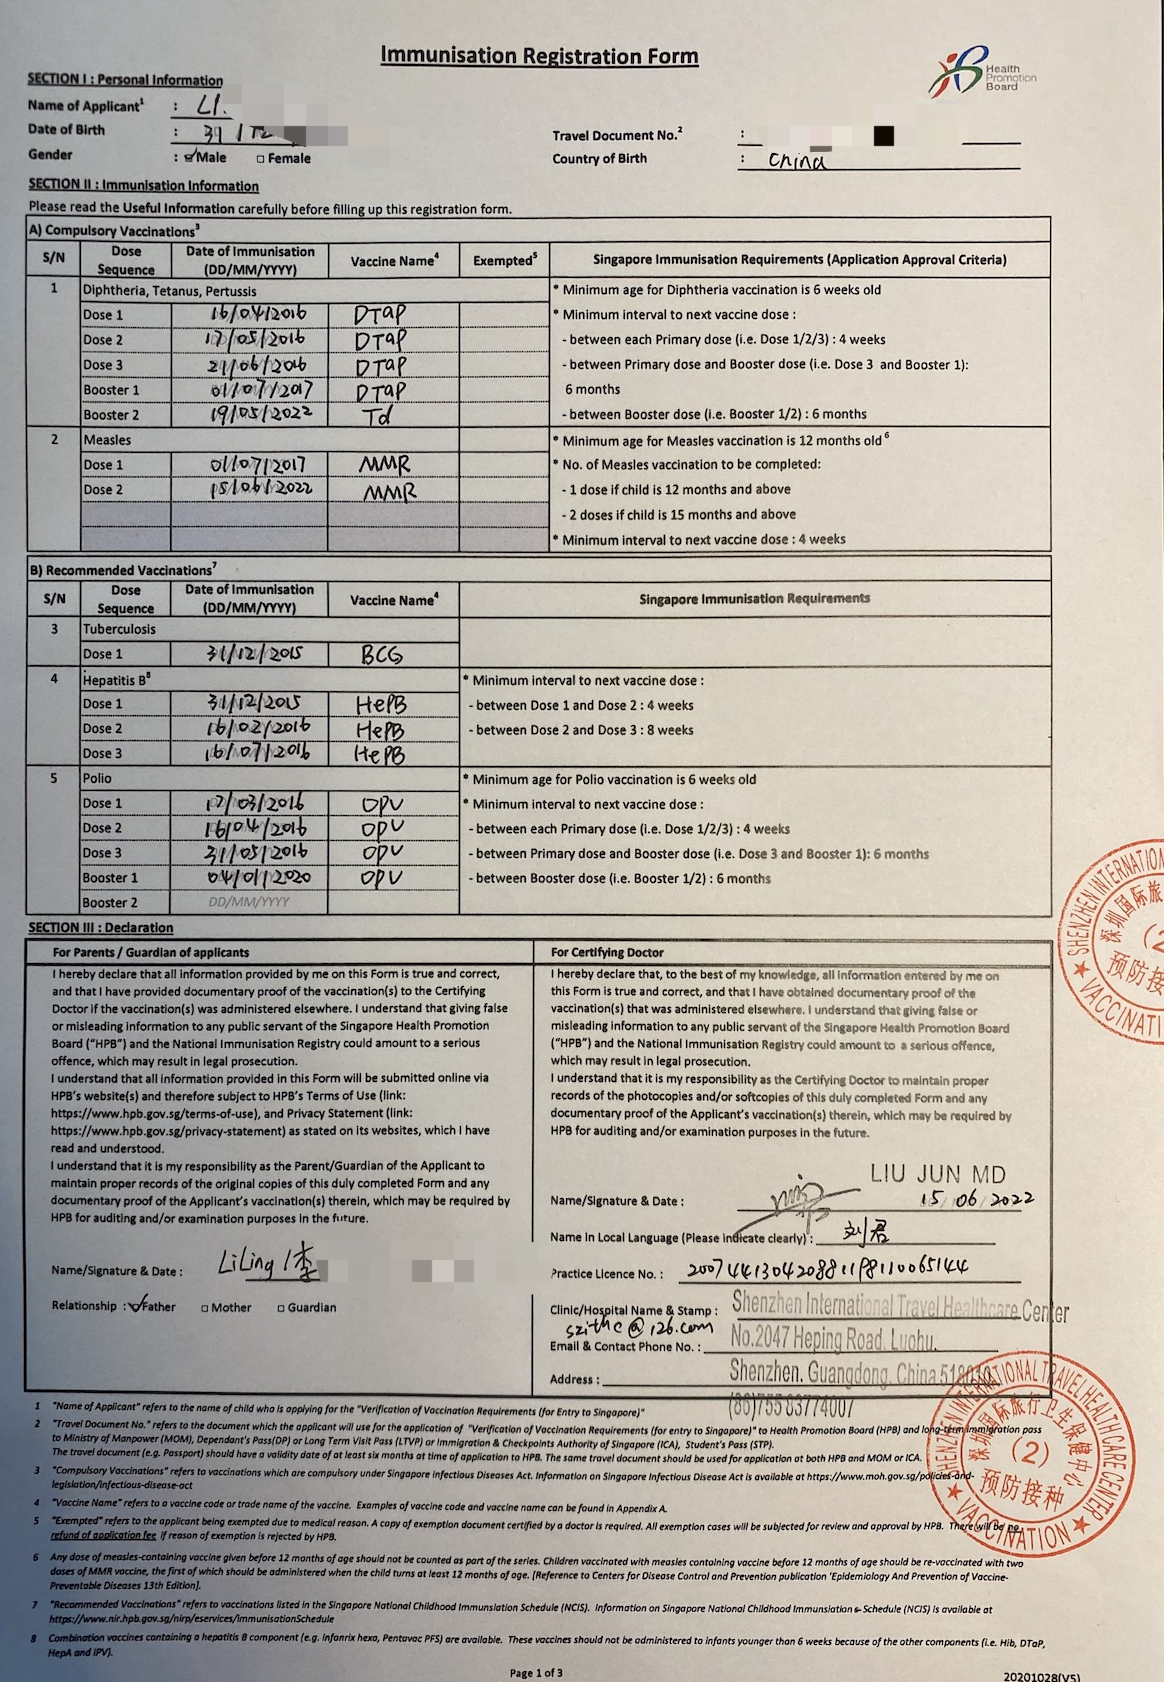 Immunisation Registration Form
Health
Promotion
Board
SECTION I : Personal Information
Name of Applicant1 : LI.
Date of Birth : 31/12
Travel Document No.2 :
Gender : Male Female
Country of Birth : China
SECTION II : Immunisation Information
Please read the Useful Information carefully before filling up this registration form.
A) Compulsory Vaccinations3
S/N Dose Sequence Date of Immunisation (DD/MM/YYYY) Vaccine Name4 Exempted5 Singapore Immunisation Requirements (Application Approval Criteria)
1 Diphtheria, Tetanus, Pertussis * Minimum age for Diphtheria vaccination is 6 weeks old
Dose 1 16/04/2016 DTaP * Minimum interval to next vaccine dose :
Dose 2 17/05/2016 DTaP - between each Primary dose (i.e. Dose 1/2/3) : 4 weeks
Dose 3 21/06/2016 DTaP - between Primary dose and Booster dose (i.e. Dose 3 and Booster 1):
Booster 1 01/07/2017 DTaP 6 months
Booster 2 19/05/2022 Td - between Booster dose (i.e. Booster 1/2) : 6 months
2 Measles * Minimum age for Measles vaccination is 12 months old6
Dose 1 01/07/2017 MMR * No. of Measles vaccination to be completed:
Dose 2 15/06/2022 MMR - 1 dose if child is 12 months and above
- 2 doses if child is 15 months and above
* Minimum interval to next vaccine dose : 4 weeks
B) Recommended Vaccinations7
S/N Dose Sequence Date of Immunisation (DD/MM/YYYY) Vaccine Name4 Singapore Immunisation Requirements
3 Tuberculosis
Dose 1 31/12/2015 BCG
4 Hepatitis B8 * Minimum interval to next vaccine dose :
Dose 1 31/12/2015 HePB - between Dose 1 and Dose 2 : 4 weeks
Dose 2 16/02/2016 HePB - between Dose 2 and Dose 3 : 8 weeks
Dose 3 16/07/2016 HePB
5 Polio * Minimum age for Polio vaccination is 6 weeks old
Dose 1 17/03/2016 OPV * Minimum interval to next vaccine dose :
Dose 2 16/04/2016 OPV - between each Primary dose (i.e. Dose 1/2/3) : 4 weeks
Dose 3 31/05/2016 OPV - between Primary dose and Booster dose (i.e. Dose 3 and Booster 1): 6 months
Booster 1 04/01/2020 OPV - between Booster dose (i.e. Booster 1/2) : 6 months
Booster 2 DD/MM/YYYY
SHENZHEN INTERNATIONAL
深圳国际旅
(2
预防接
VACCINATI
SECTION III : Declaration
For Parents / Guardian of applicants
I hereby declare that all information provided by me on this Form is true and correct,
and that I have provided documentary proof of the vaccination(s) to the Certifying
Doctor if the vaccination(s) was administered elsewhere. I understand that giving false
or misleading information to any public servant of the Singapore Health Promotion
Board ("HPB") and the National Immunisation Registry could amount to a serious
offence, which may result in legal prosecution.
I understand that all information provided in this Form will be submitted online via
HPB's website(s) and therefore subject to HPB's Terms of Use (link:
https://www.hpb.gov.sg/terms-of-use), and Privacy Statement (link:
https://www.hpb.gov.sg/privacy-statement) as stated on its websites, which I have
read and understood.
I understand that it is my responsibility as the Parent/Guardian of the Applicant to
maintain proper records of the original copies of this duly completed Form and any
documentary proof of the Applicant's vaccination(s) therein, which may be required by
HPB for auditing and/or examination purposes in the future.
Name/Signature & Date : LiLing / 李
Relationship : Father Mother Guardian
For Certifying Doctor
I hereby declare that, to the best of my knowledge, all information entered by me on
this Form is true and correct, and that I have obtained documentary proof of the
vaccination(s) that was administered elsewhere. I understand that giving false or
misleading information to any public servant of the Singapore Health Promotion Board
("HPB") and the National Immunisation Registry could amount to a serious offence,
which may result in legal prosecution.
I understand that it is my responsibility as the Certifying Doctor to maintain proper
records of the photocopies and/or softcopies of this duly completed Form and any
documentary proof of the Applicant's vaccination(s) therein, which may be required by
HPB for auditing and/or examination purposes in the future.
LIU JUN MD
Name/Signature & Date : 15/06/2022
Name In Local Language (Please indicate clearly) : 刘君
Practice Licence No. : 
Clinic/Hospital Name & Stamp : Shenzhen International Travel Healthcare Center
szithc@126.com
Email & Contact Phone No. : No.2047 Heping Road. Luohu.
Address : Shenzhen. Guangdong. China
(86)755 83774007
SHENZHEN INTERNATIONAL TRAVEL HEALTHCARE CENTER
深圳国际旅行卫生保健中心
(2)
预防接种
VACCINATION
1 "Name of Applicant" refers to the name of child who is applying for the "Verification of Vaccination Requirements (for Entry to Singapore)"
2 "Travel Document No." refers to the document which the applicant will use for the application of "Verification of Vaccination Requirements (for entry to Singapore)" to Health Promotion Board (HPB) and long-term immigration pass
to Ministry of Manpower (MOM), Dependant's Pass(DP) or Long Term Visit Pass (LTVP) or Immigration & Checkpoints Authority of Singapore (ICA), Student's Pass (STP).
The travel document (e.g. Passport) should have a validity date of at least six months at time of application to HPB. The same travel document should be used for application at both HPB and MOM or ICA.
3 "Compulsory Vaccinations" refers to vaccinations which are compulsory under Singapore Infectious Diseases Act. Information on Singapore Infectious Disease Act is available at https://www.moh.gov.sg/policies-and-
legislation/infectious-disease-act
4 "Vaccine Name" refers to a vaccine code or trade name of the vaccine. Examples of vaccine code and vaccine name can be found in Appendix A.
5 "Exempted" refers to the applicant being exempted due to medical reason. A copy of exemption document certified by a doctor is required. All exemption cases will be subjected for review and approval by HPB. There will be no
refund of application fee if reason of exemption is rejected by HPB.
6 Any dose of measles-containing vaccine given before 12 months of age should not be counted as part of the series. Children vaccinated with measles containing vaccine before 12 months of age should be re-vaccinated with two
doses of MMR vaccine, the first of which should be administered when the child turns at least 12 months of age. [Reference to Centers for Disease Control and Prevention publication 'Epidemiology And Prevention of Vaccine-
Preventable Diseases 13th Edition].
7 "Recommended Vaccinations" refers to vaccinations listed in the Singapore National Childhood Immunsiation Schedule (NCIS). Information on Singapore National Childhood Immunsiation Schedule (NCIS) is available at
https://www.nir.hpb.gov.sg/nirp/eservices/immunisationSchedule
8 Combination vaccines containing a hepatitis B component (e.g. infanrix hexa, Pentavac PFS) are available. These vaccines should not be administered to infants younger than 6 weeks because of the other components (i.e. Hib, DTaP,
HepA and IPV).
Page 1 of 3
20201028(V5)